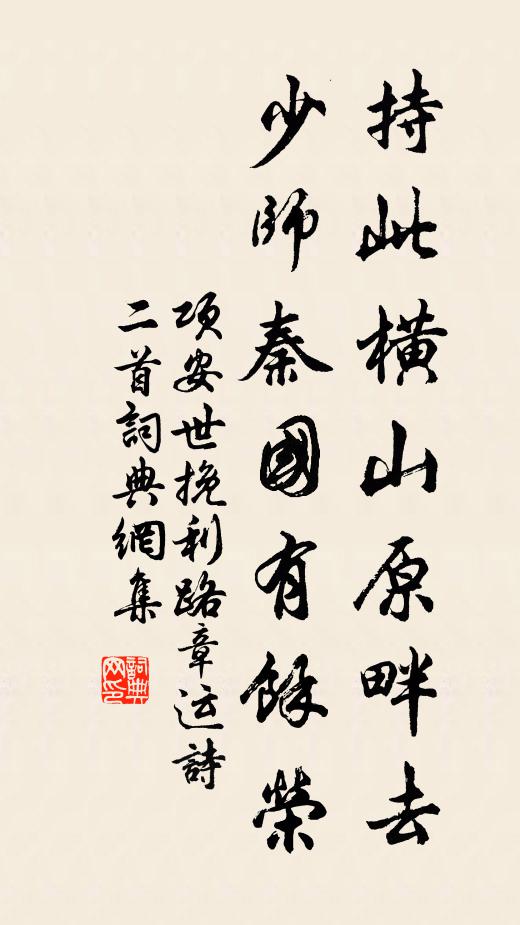 持此橫山原畔去
少師秦國有餘榮
項安世挽利路章运詩
二首詞典網集
詞典
网印